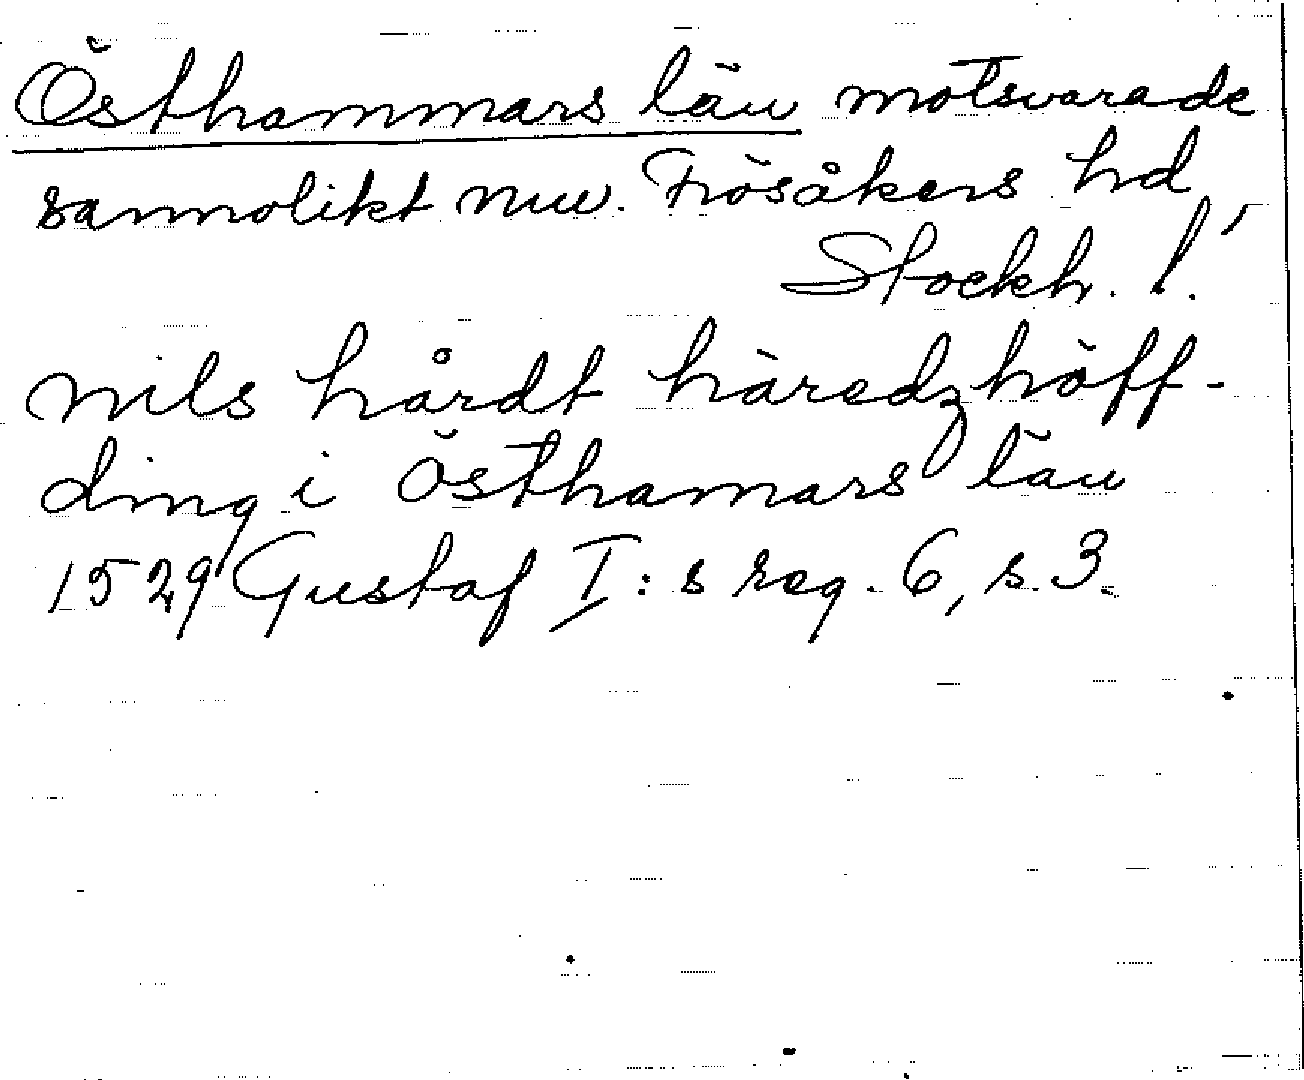 Östhammars län motsvarade
sannolikt nuv. Frösåkers hd,
Stockh. l.
nils hårdt häredzhöff-
ding i Östhamars län
1529 Gustaf I:s reg. 6, s. 3.